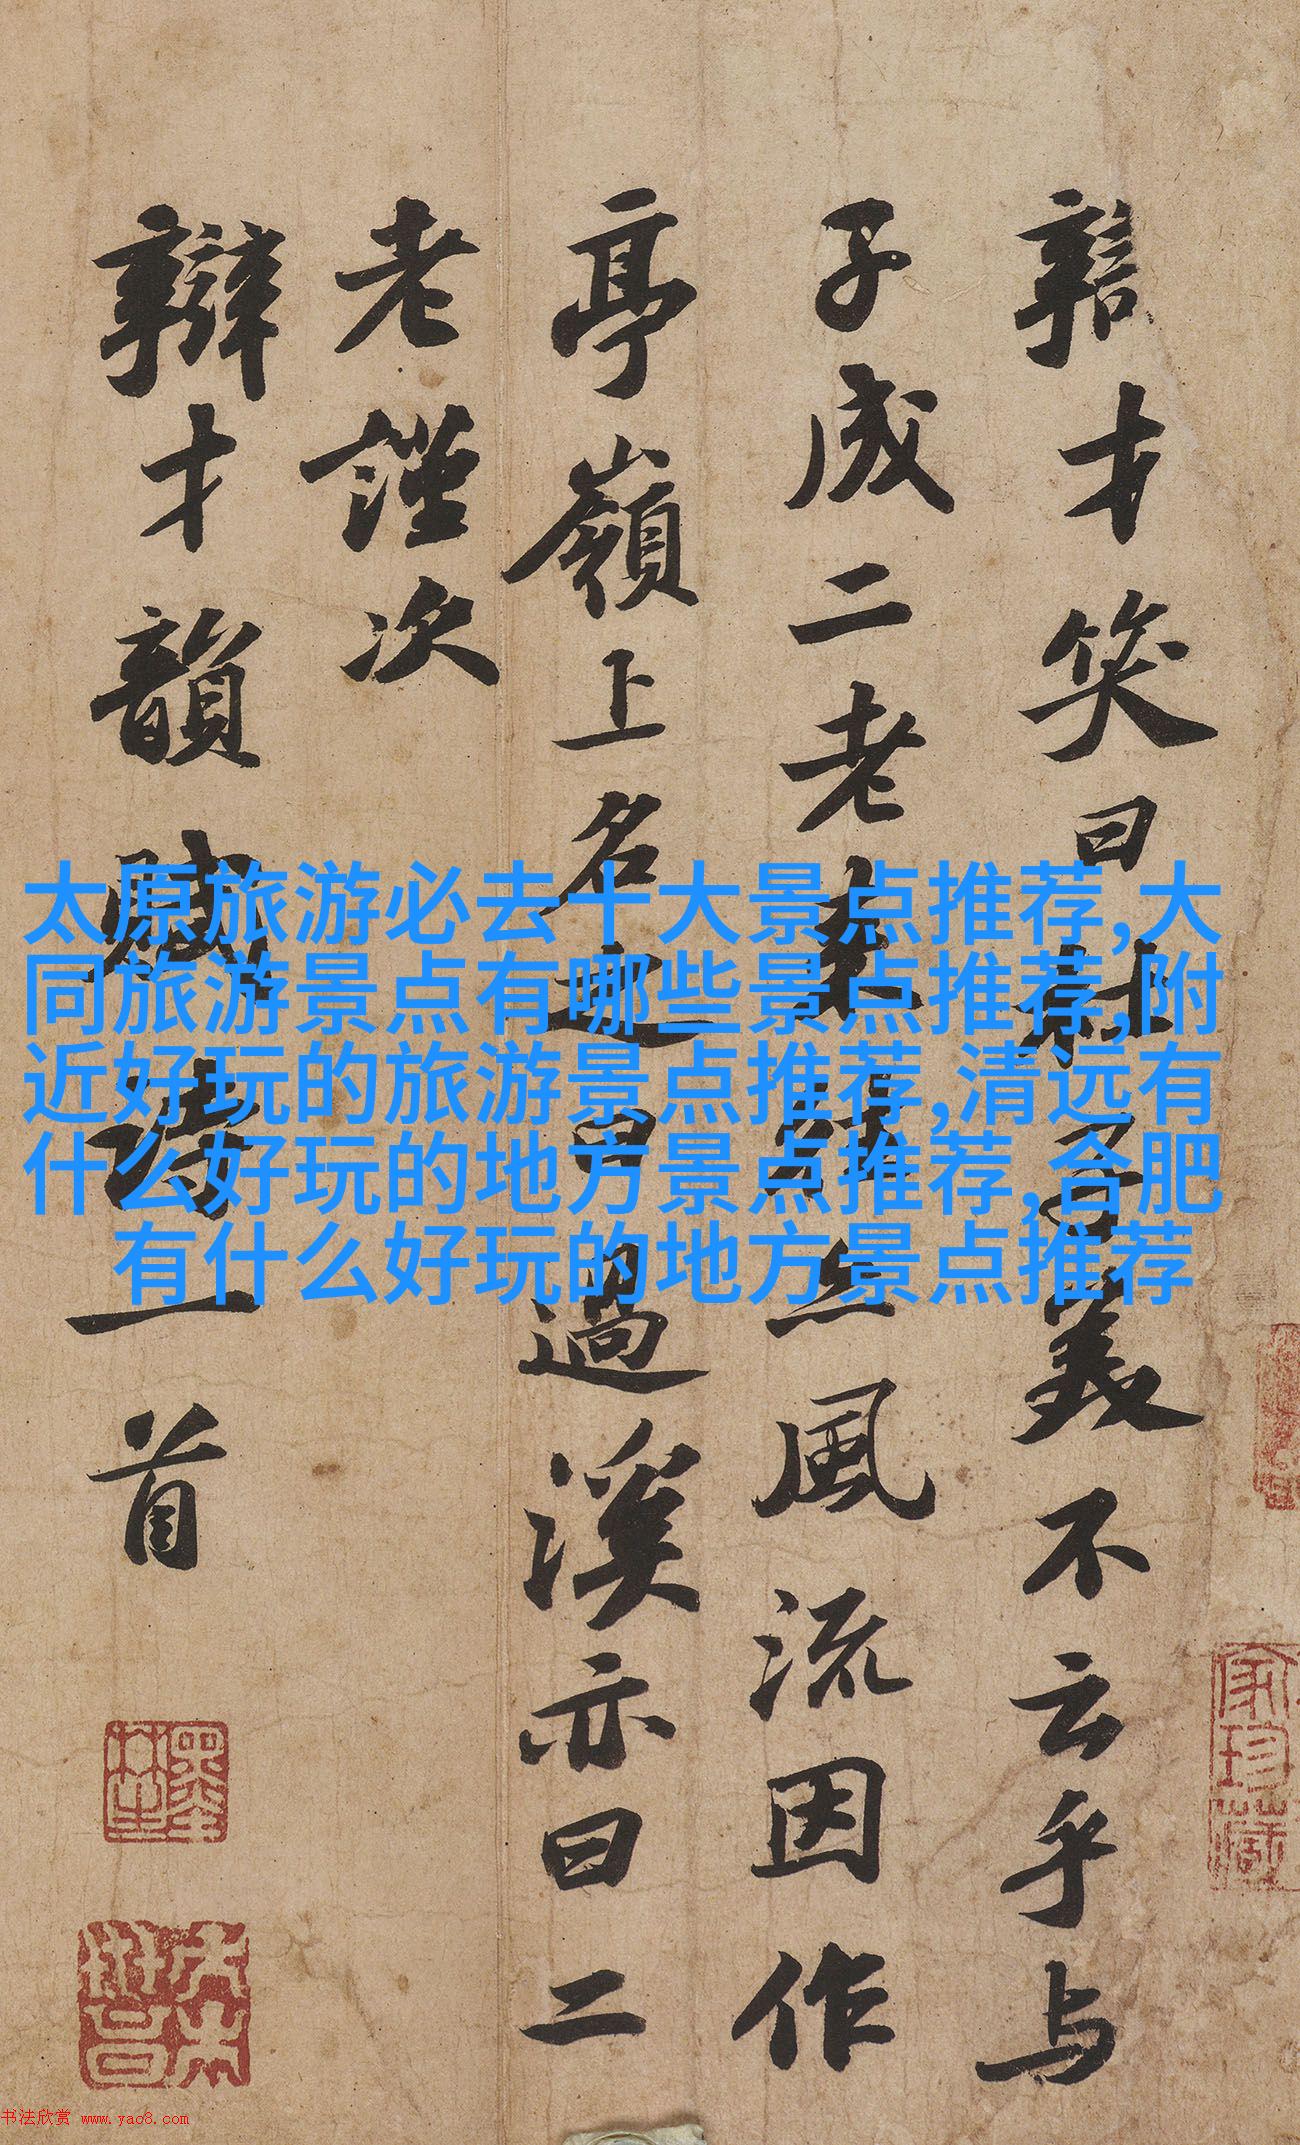 辯才笑曰杜子美不云乎与
子成二老來往亦風流因作
亭嶺上名之曰過溪亦曰二
老謹次
辯才韻賦詩一首
太原旅游必去十大景点推荐,大
同旅游景点有哪些景点推荐,附
近好玩的旅游景点推荐,清远有
什么好玩的地方景点推荐,合肥
有什么好玩的地方景点推荐
家珍藏
书法欣赏 www.yac8.com